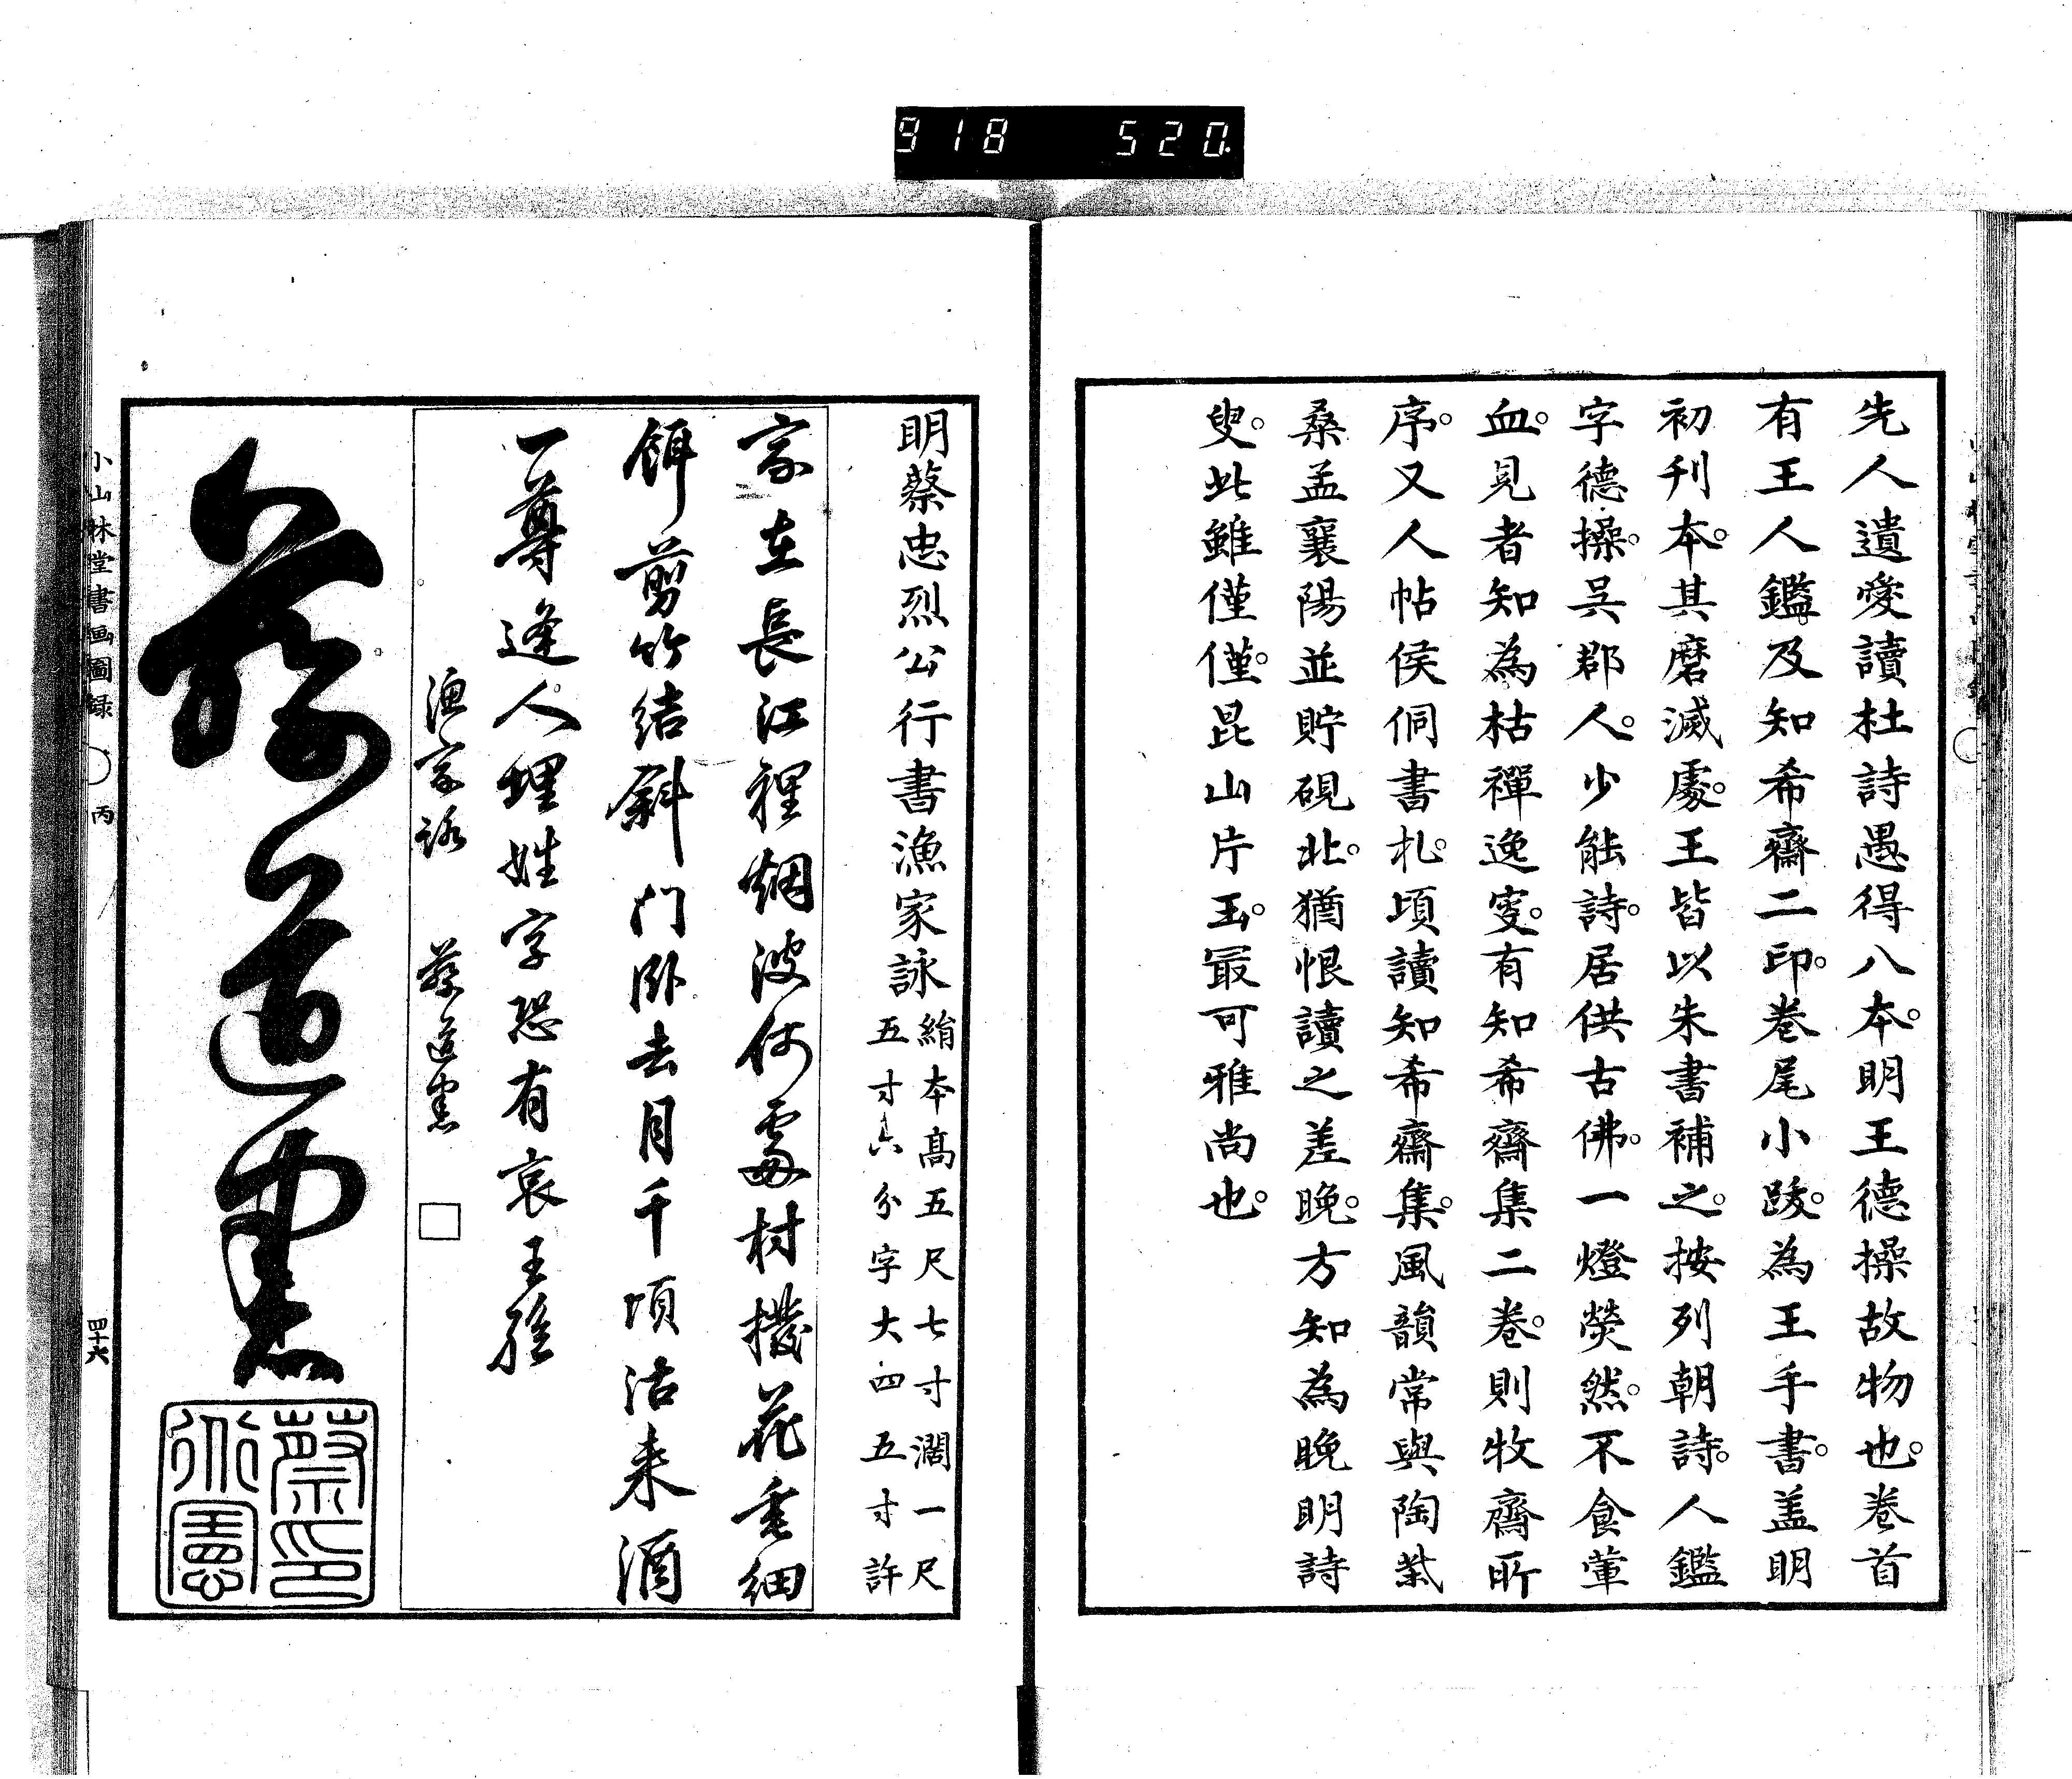 918 520
先人遺愛讀杜詩愚得八本。明王德操故物也。卷首
有王人鑑。及知希齋二印。卷尾小跋。為王手書。盖明
初刊本。其磨滅處。王皆以朱書補之。按列朝詩。人鑑
字德操。吴郡人。少能詩。居供古佛。一燈熒然。不食葷
血。見者知為枯禪逸叟。有知希齋集二卷。則牧齋所
序。又人帖侯侗書札。頃讀知希齋集。風韻常與陶柴
桑孟襄陽並貯硯北。猶恨讀之差晚。方知為晚明詩
叟。此雖僅僅。昆山片玉。最可雅尚也。
明蔡忠烈公行書漁家詠
絹本高五尺七寸濶一尺
五寸六分字大四五寸許
家在長江裡烟波何處村機花垂細
餌剪竹結斜门卧去月千頃沽来酒
一尊逢人埋姓字恐有哀王孫
漁家詠 蔡道憲
蔡道憲
蔡道憲印
小山林堂書画圖録 丙 四十六